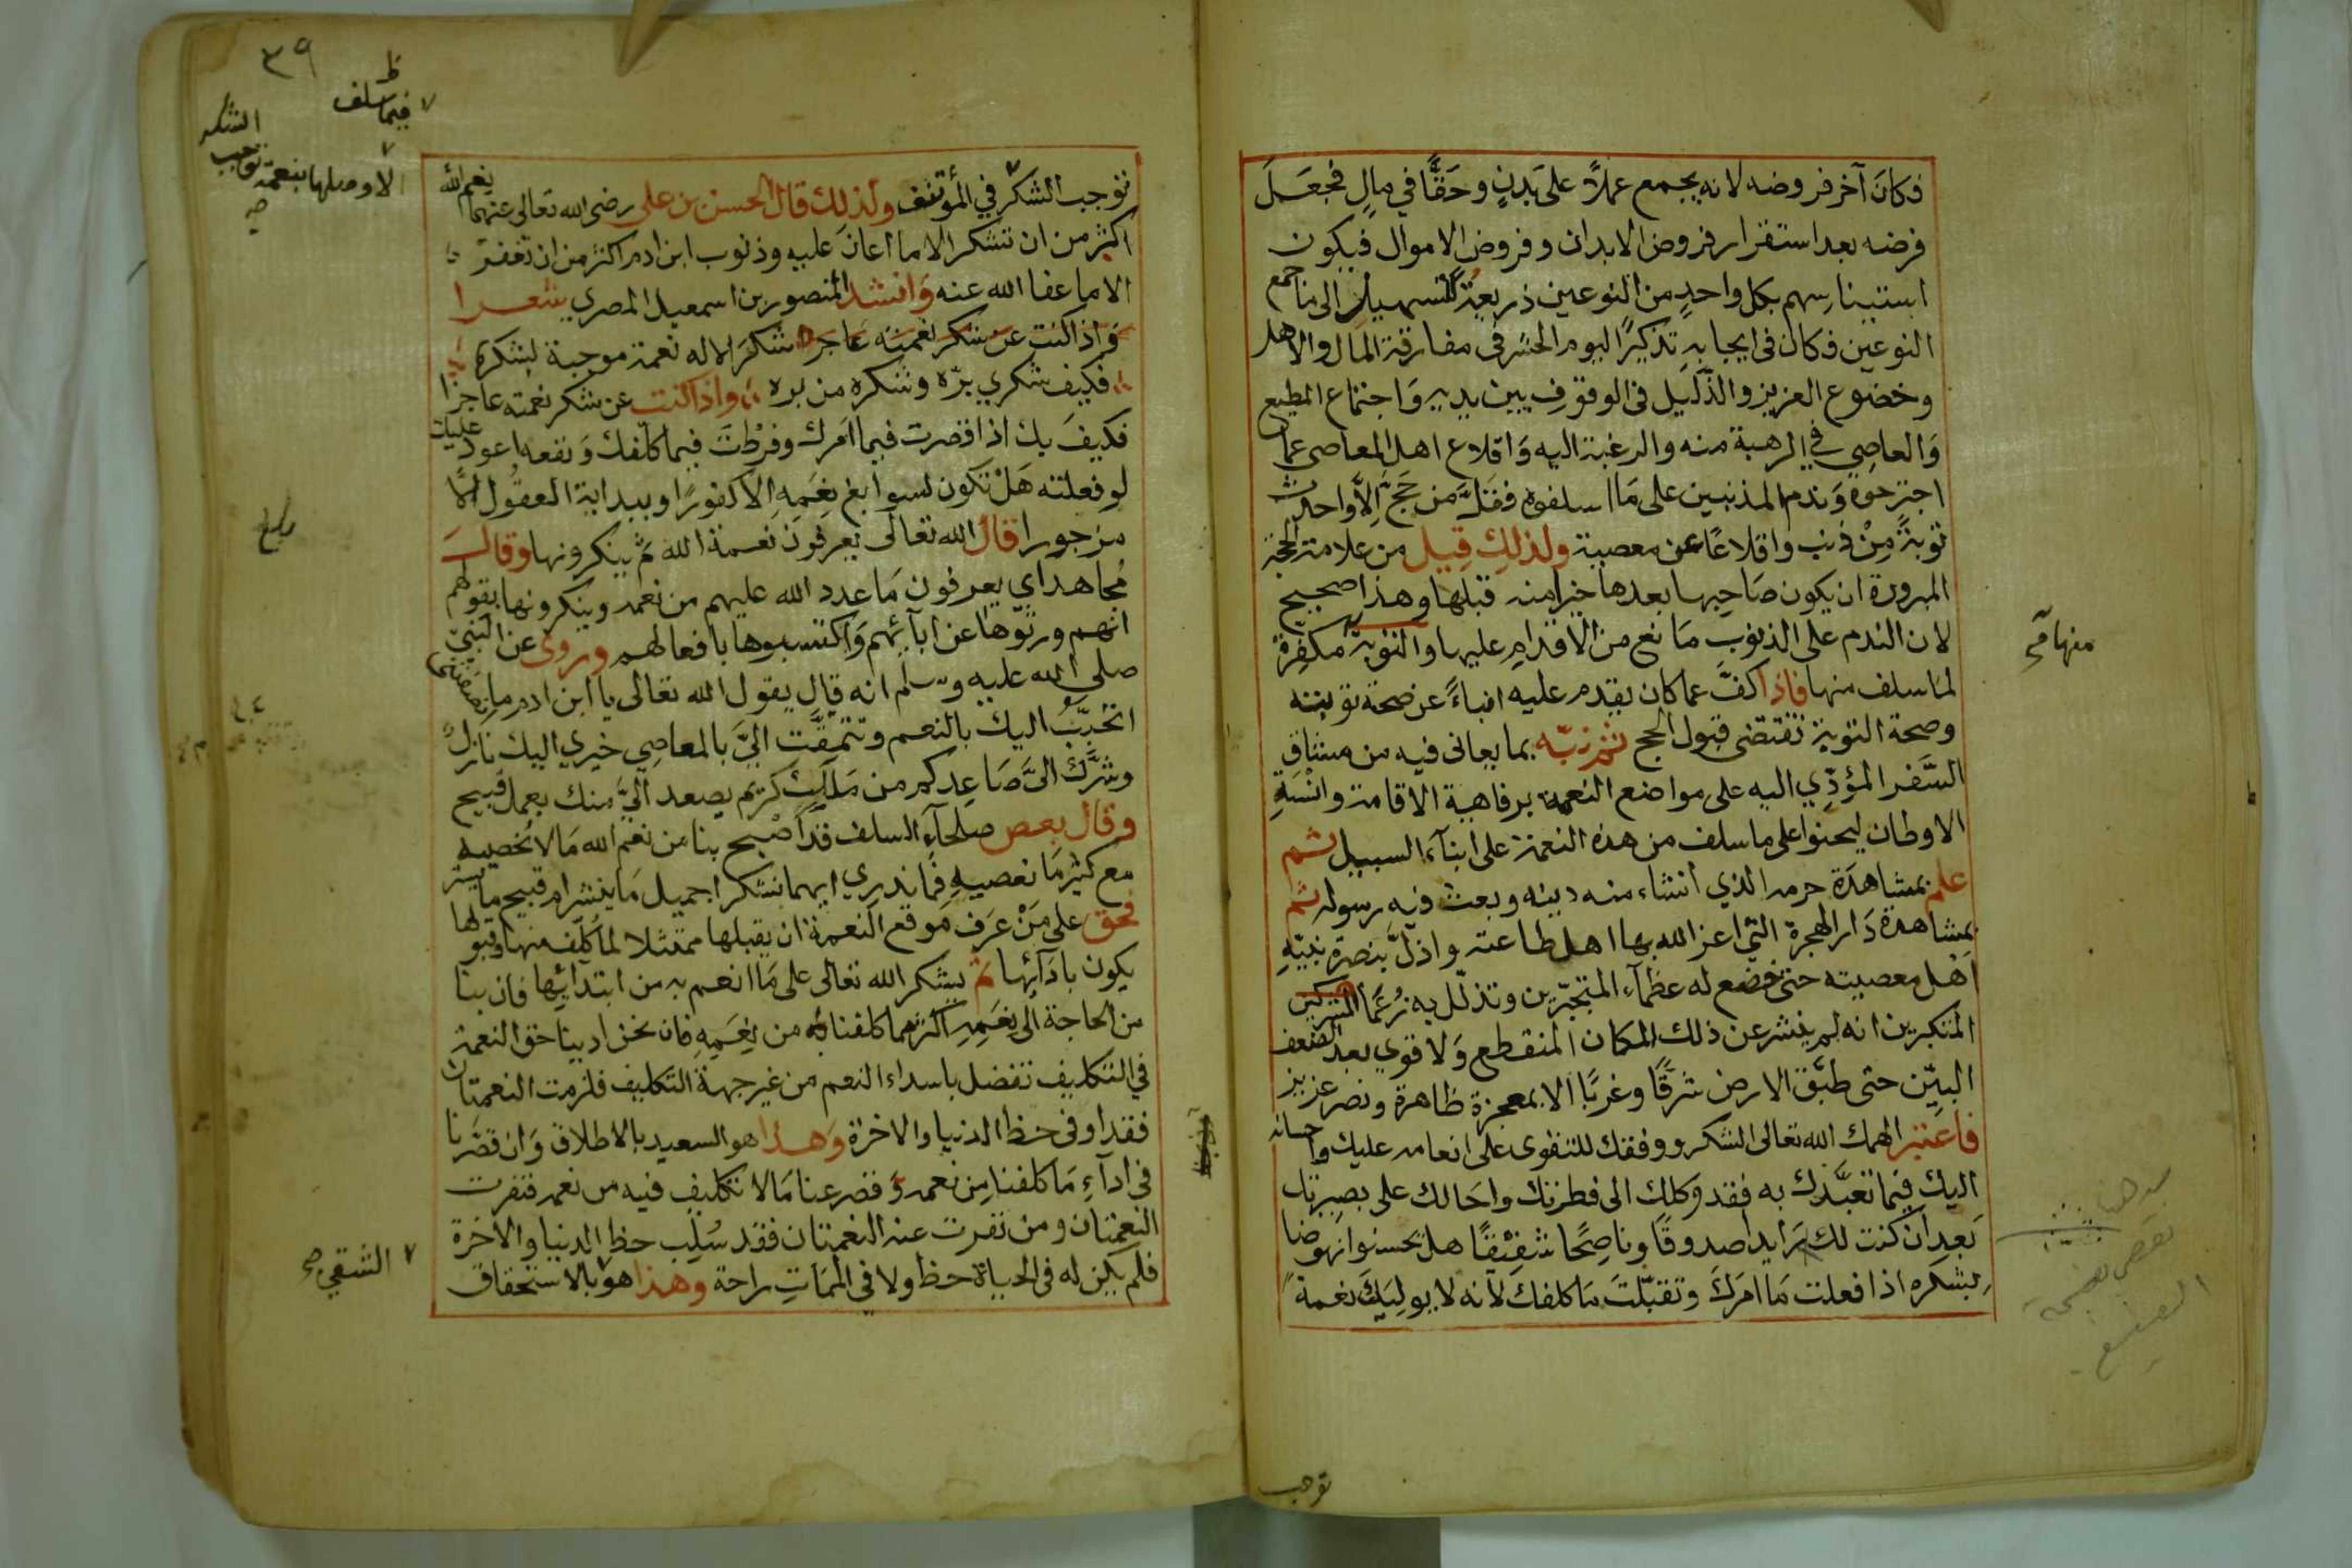 فكان آخر فروضه لانه يجمع عملاً على بدن وحقًّا في مال فجعل
فرضه بعد استقرار فروض الابدان وفروض الاموال فيكون
استيناسهم بكل واحدٍ من النوعين ذريعة لتسهيل الى ما جمع
النوعين فكان في ايجابه تذكيرًا ليوم الحشر في مفارقة المال والاهل
وخضوع العزيز والذليل في الوقوف بين يديه وَاجتماع المطيع
وَالعاصي في الرهبة منه والرغبة اليه وَاقلاع اهل المعاصي عما
اجترحوه وَندم المذنبين على مَا اسلفوه فقلّ من حَجّ اِلّا واحدث
توبةً مِنْ ذنب واقلاعًا عن معصية ولذلك قيل من علامة الحجة
المبرورة ان يكون صَاحبها بعدها خيرا منه قبلها وهذا صحيح
لان الندم على الذنوب مَانع من الاقدام عليها والتوبة مكفرة
لما سلف منها فاذا كفّ عما كان يقدم عليه انباءً عن صحة توبته
وصحة التوبة تقتضى قبول الحج ثم نبّه بما يعانى فيه من مشاق
السّفر المؤدّي اليه على مواضع النعمة برفاهية الاقامة وانْسَةِ
الاوطان ليحنوا على ما سلف من هذه النعمة على ابنآء السبيل ثم
علم بمشاهدة حرمه الذي أنشاء منه دينه وبعث فيه رسوله ثم
بمشاهدة دَار الهجرة التي اعز الله بها اهل طاعته واذلّ بنصرة نبيّهِ
اَهْل معصيته حتى خضع له عظمآء المتجبّرين وتذلّل به زُعَمَآ
المتكبرين انه لم ينشر عن ذلك المكان المنقطع وَلا قوي بعد الضعف
البيّن حتى طبّق الارض شرقًا وغربًا الا بمعجزة ظاهرة ونصر عزيز
فاعتبر الهمك الله تعالى الشكر ووفقك للتقوى على انعامه عليك واحسانه
اليك فيما تعبّدك به فقد وكلك الى فطرتك واحَالك على بصيرتك
بَعد اَن كنت لك رَايدا صدوقًا وناصِحًا شفيْقًا هل تحسنوا نهوضا
بِشكره اذا فعلت مَا امَرك وتقبّلتَ مَا كلفك لآنه لا يوليَك نعمةً
منها صح
توجب
٣٩
ظ
فيما سلف
الشكر
الا وصلها بنعمة توجب
صح
توجب الشكر في المؤتنف ولذلك قال الحسن بن على رضى الله تعالى عنهما نعم الله
اكثر من ان تشكر الا ما اعان عليه وذنوب ابن ادم اكثر من ان تغفر
الا ما عفا الله عنه وَانشد المنصور بن اسمعيل المصري شعرا
شكر الاله نعمة موجبة لشكره
فكيف شكري برّه وشكره من بره واذا كنت عن شكر نعمته عاجزا
فكيفَ بك اذا قصرت فيما امَرك وفرطْتَ فيما كلّفك وَنفعه اعود عليك
لو فعلته هَلْ تكون لسوابغ نِعَمِهِ اِلا كفورًا وببداية العقُول الّا
مزجورا قال الله تعالى يعرفون نعمة الله ثم ينكرونها وقال
مُجاهد اي يعرفون مَا عدد الله عليهم من نعمه وينكرونها بقولهم
انهم ورثوّها عن ابآئهم وَاكتسبوها بافعالهم وروى عن النبي
صلى الله عليه وسلم انه قال يقول الله تعالى يا ابن ادم ما تنصفني
اتحبّبُ اليك بالنعم وتتمقّت اليَّ بالمعاصِي خيري اليك نَازل
وشرّك الىَّ صَاعد كم من مَلَك كريم يصعد اليَّ منك بعمل قبيح
وقال بعض صلحآء السلف قد اَصْبح بنا من نعم الله مَا لا نحصيه
مع كثر مَا نعصيهِ فَما ندري ايهما نشكر اجميل مَا ينشر ام قبيح ما يستر
فحق على مَنْ عَرَف مَوقع النعمة ان يقبلها ممتثلا لما كُلّف منها وقبولها
يكون بادَآئها ثم يشكر الله تعالى على مَا انعم به من ابتدآئها فان بنا
من الحاجة الى نِعَمِهِ اكثر مما كلفنا به من نِعَمِهِ فان نحن ادينا حق النعمة
في التكليف تفضل باسداء النعم من غير جهة التكليف فلزمت النعمتان
فقد اوفى حظ الدنيا والاخرة وَهذا هو السعيد بالاطلاق وَان قصّرنا
في ادآءِ مَا كلفنا مِن نعمه وَ قصر عنا مَا لا تكليف فيه من نعمه فنفرت
النعمتان ومن نفرت عنه النعمتان فقد سُلِب حظ الدنيا والاخرة
فلم يكن له في الحياة حظ ولا في الممَاتِ راحة وهذا هو بالاستحقاق
الشقي صح